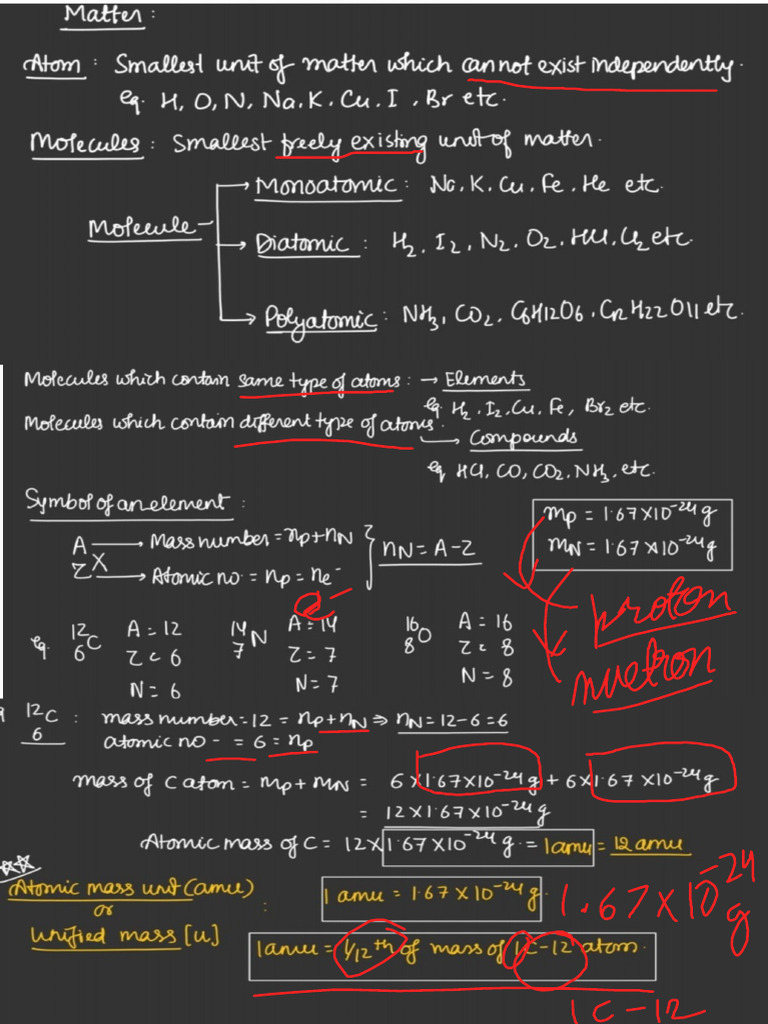 Matter :
Atom : Smallest unit of matter which cannot exist independently.
eg. H, O, N, Na, K, Cu, I, Br etc.
Molecules : Smallest freely existing unit of matter.
Molecule
Monoatomic : Na, K, Cu, Fe, He etc.
Diatomic : H2, I2, N2, O2, HCl, Cl2 etc.
Polyatomic : NH3, CO2, C6H12O6, C12H22O11 etc.
Molecules which contain same type of atoms : → Elements
eg. H2, I2, Cu, Fe, Br2 etc.
Molecules which contain different type of atoms.
→ Compounds
eg HCl, CO, CO2, NH3, etc.
Symbol of an element :
A → Mass number = np+nN
X
Z → Atomic no. = np = ne-
nN = A-Z
mp = 1.67×10^-24 g
mN = 1.67×10^-24 g
e-
proton
nuetron
eg. 12 6 C A = 12 14 7 N A = 14 16 8 O A = 16
Z = 6 Z = 7 Z = 8
N = 6 N = 7 N = 8
12 6 C : mass number = 12 = np+nN ⇒ nN = 12-6 = 6
atomic no - = 6 = np
mass of C atom = mp + mN = 6×1.67×10^-24 g + 6×1.67×10^-24 g
= 12×1.67×10^-24 g
Atomic mass of C = 12×1.67×10^-24 g = 1amu = 12 amu
Atomic mass unit (amu)
or
unified mass [u]
:
1 amu = 1.67×10^-24 g
1.67×10^-24 g
1amu = 1/12th of mass of 1C-12 atom.
1C-12